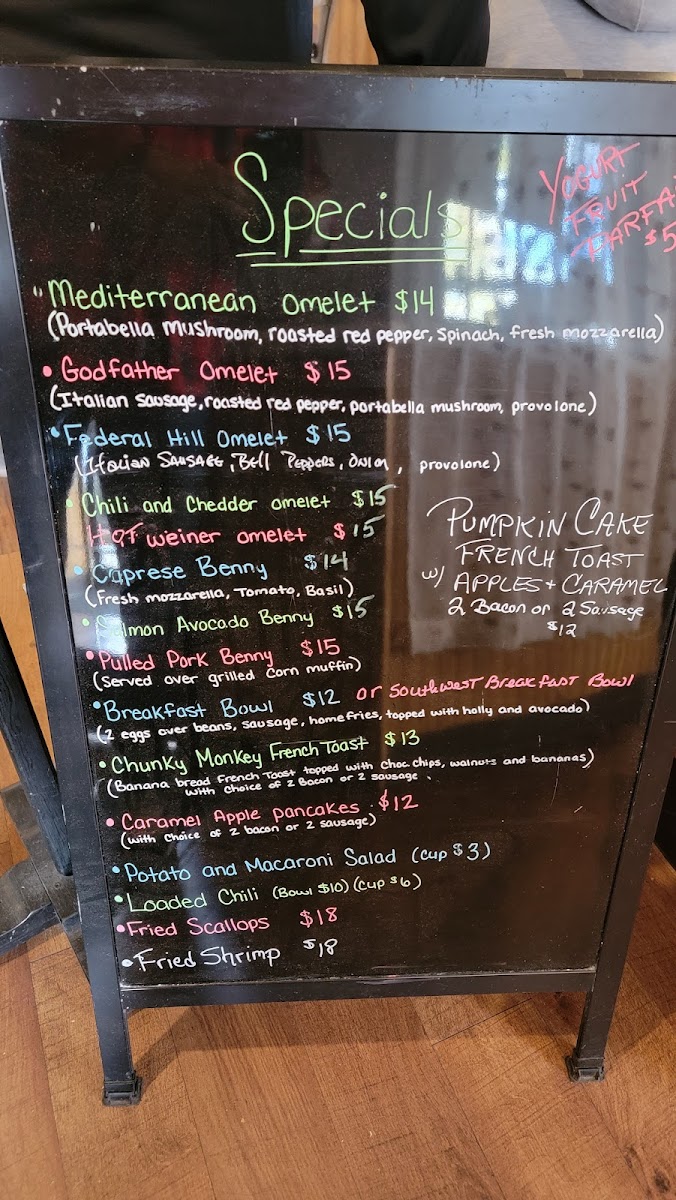 Specials
YOGURT
FRUIT
$5
Mediterranean omelet $14
(Portabella mushroom, roasted red pepper, spinach, fresh mozzarella)
• Godfather Omelet $15
(Italian sausage, roasted red pepper, portabella mushroom, provolone)
• Federal Hill Omelet $15
(Italian SAUSAGE, Bell Peppers, Onion, provolone)
• Chili and Chedder omelet $15
weiner omelet $15
• Caprese Benny $14
(Fresh mozzarella, Tomato, Basil)
• Salmon Avocado Benny $15
• Pulled Pork Benny $15
(Served over grilled corn muffin)
• Breakfast Bowl $12 or Southwest Breakfast Bowl
(2 eggs over beans, sausage, homefries, topped with holly and avocado)
• Chunky Monkey French Toast $13
(Banana bread French Toast topped with choc.chips, walnuts and bananas)
with choice of 2 Bacon or 2 sausage
• Caramel Apple pancakes $12
(with choice of 2 bacon or 2 sausage)
• Potato and Macaroni Salad (cup $3)
• Loaded Chili (Bowl $10) (cup $6)
• Fried Scallops $18
• Fried Shrimp $18
PUMPKIN CAKE
FRENCH TOAST
w/ APPLES + CARAMEL
2 Bacon or 2 Sausage
$12